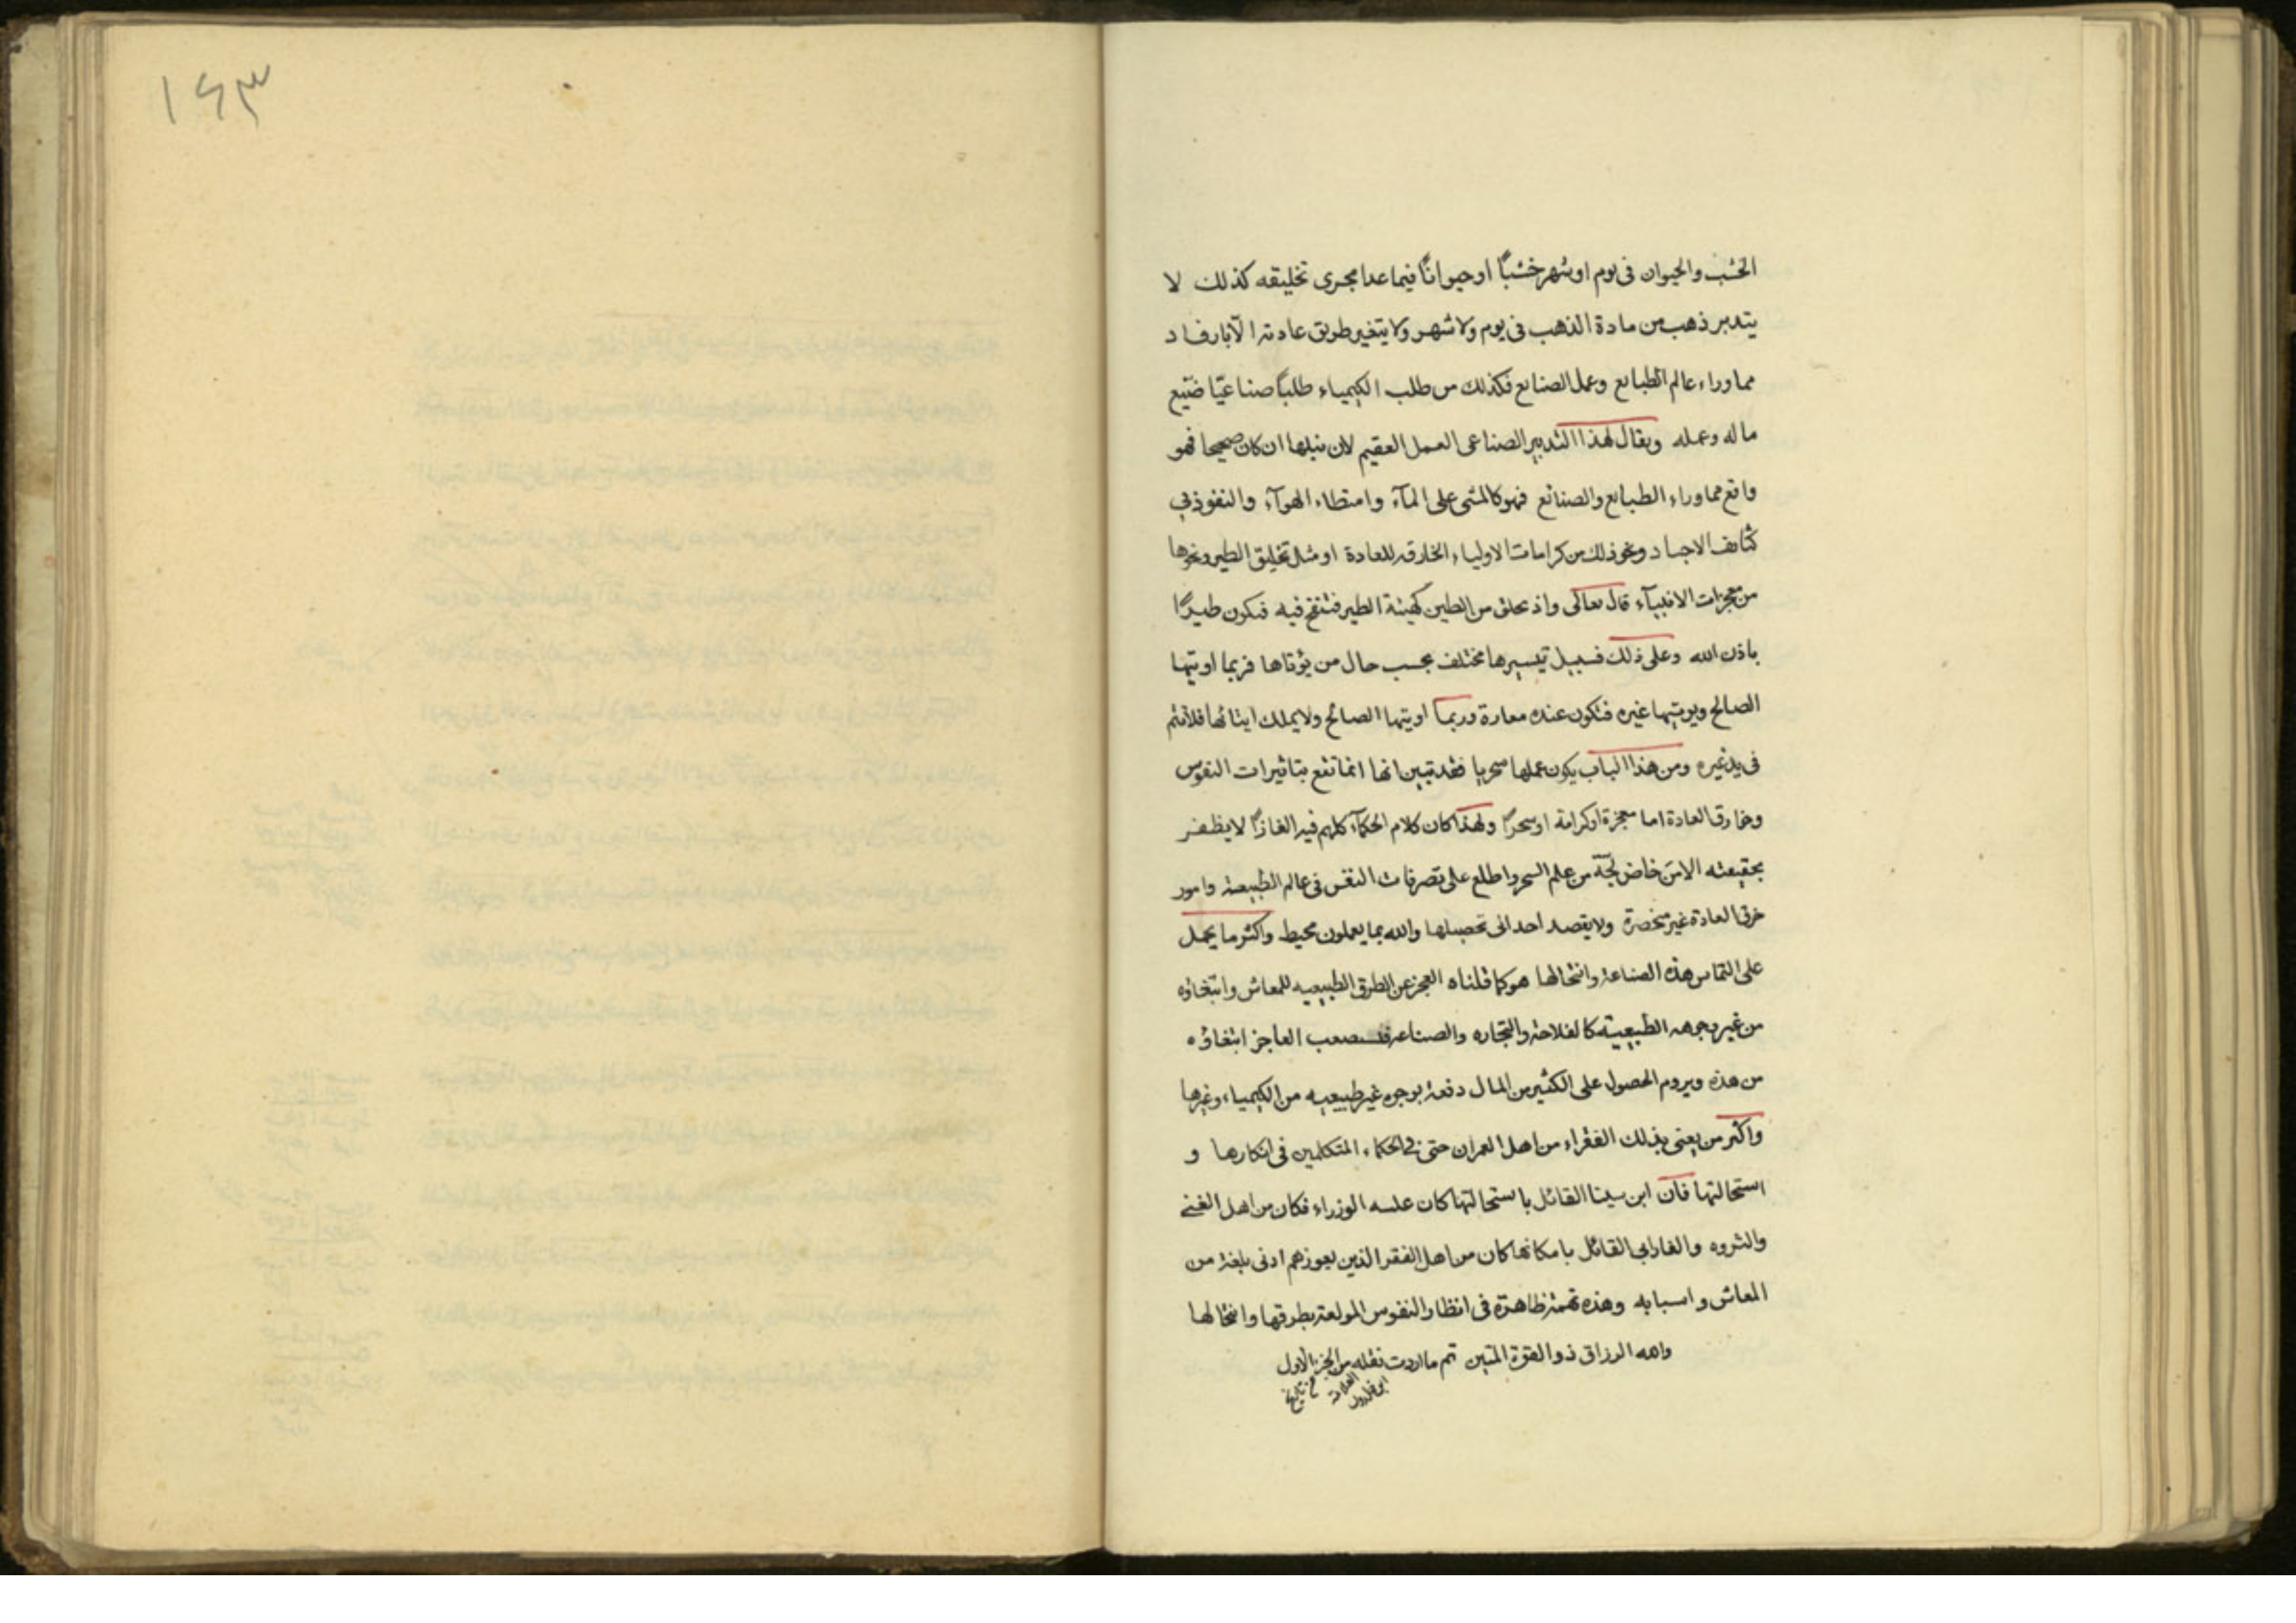 الخشب والحيوان فى يوم او شهر خشبًا او حيوانًا فيما عدا مجرى تخليقه كذلك لا
يتدبر ذهب من مادة الذهب فى يوم ولا شهر ولا يتغير طريق عادته الّا بارفاد
مما وراء عالم الطبايع وعمل الصنايع فكذلك من طلب الكيمياء طلبًا صناعيًّا ضيّع
ماله وعمله ويقال لهذا التدبير الصناعى العمل العقيم لان نيلها ان كان صحيحا فهو
واقع مما وراء الطبايع والصنائع فهو كالمشى على المآء وامتطاء الهوآء والنفوذ فى
كثايف الاجساد ونحو ذلك من كرامات الاولياء الخارقه للعادة او مثل تخليق الطير ونحوها
من معجزات الانبيآء قال تعالى واذ تخلق من الطين كهيئة الطير فتنفخ فيه فتكون طيرًا
باذن الله وعلى ذلك فسبيل تيسيرها مختلف بحسب حال من يؤتاها فربما اوتيها
الصالح ويوتيها غيره فتكون عنده معارة وربما اوتيها الصالح ولا يملك ايتائها فلا تتم
فى يد غيره ومن هذا الباب يكون عملها سحريا فقد تبين انها انما تقع بتاثيرات النفوس
وخوارق العادة اما معجزة او كرامة او سحرًا ولهذا كان كلام الحكمآء كلهم فيه الغازًا لا يظفر
بحقيقته الا من خاض لجّة من علم السحر واطلع على تصرفات النفس فى عالم الطبيعة وامور
خرق العادة غير منحصرة ولا يقصد احد الى تحصيلها والله بما يعملون محيط واكثر ما يحمل
على التماس هذه الصناعة وانتحالها هو كما قلناه العجز عن الطرق الطبيعيه للمعاش وابتغاؤه
من غير وجوهه الطبيعيّة كالفلاحة والتجاره والصناعة فيستصعب العاجز ابتغاؤه
من هذه ويروم الحصول على الكثير من المال دفعة بوجوه غير طبيعيه من الكيمياء وغيرها
واكثر من يعنى بذلك الفقراء من اهل العمران حتى فى الحكماء المتكلمين فى انكارها و
استحالتها فان ابن سينا القائل باستحالتها كان عليه الوزراء فكان من اهل الغنى
والثروه والفارابى القائل بامكانها كان من اهل الفقر الذين يعوزهم ادنى بلغة من
المعاش واسبابه وهذه تهمة ظاهرة فى انظار النفوس المولعة بطرقها وانتحالها
والله الرزاق ذو القوة المتين تم ما اردت نقله من الجزء الاول
من تاريخ العلامة ابن خلدون
١٤٣